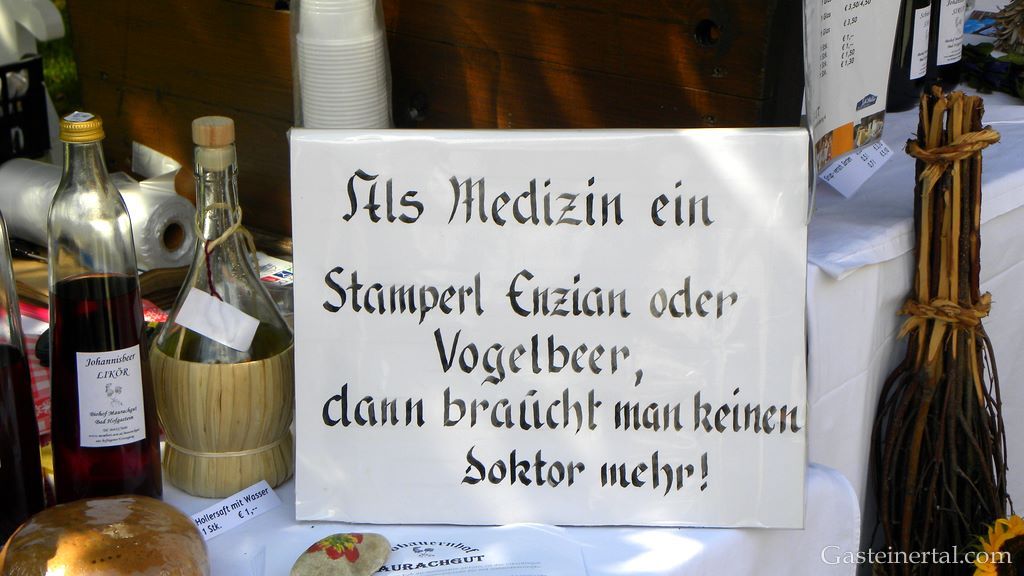 Als Medizin ein
Stamperl Enzian oder
Vogelbeer,
dann braucht man keinen
Doktor mehr!
Johannisbeer
LIKÖR
Biohof Maurachgut
Bad Hofgastein
Hollersaft mit Wasser
1 Stk. € 1,-
AURACHGUT
€ 3,50/4,50
€ 3,50
€ 1,-
€ 1,50
€ 1,50
Gasteinertal.com